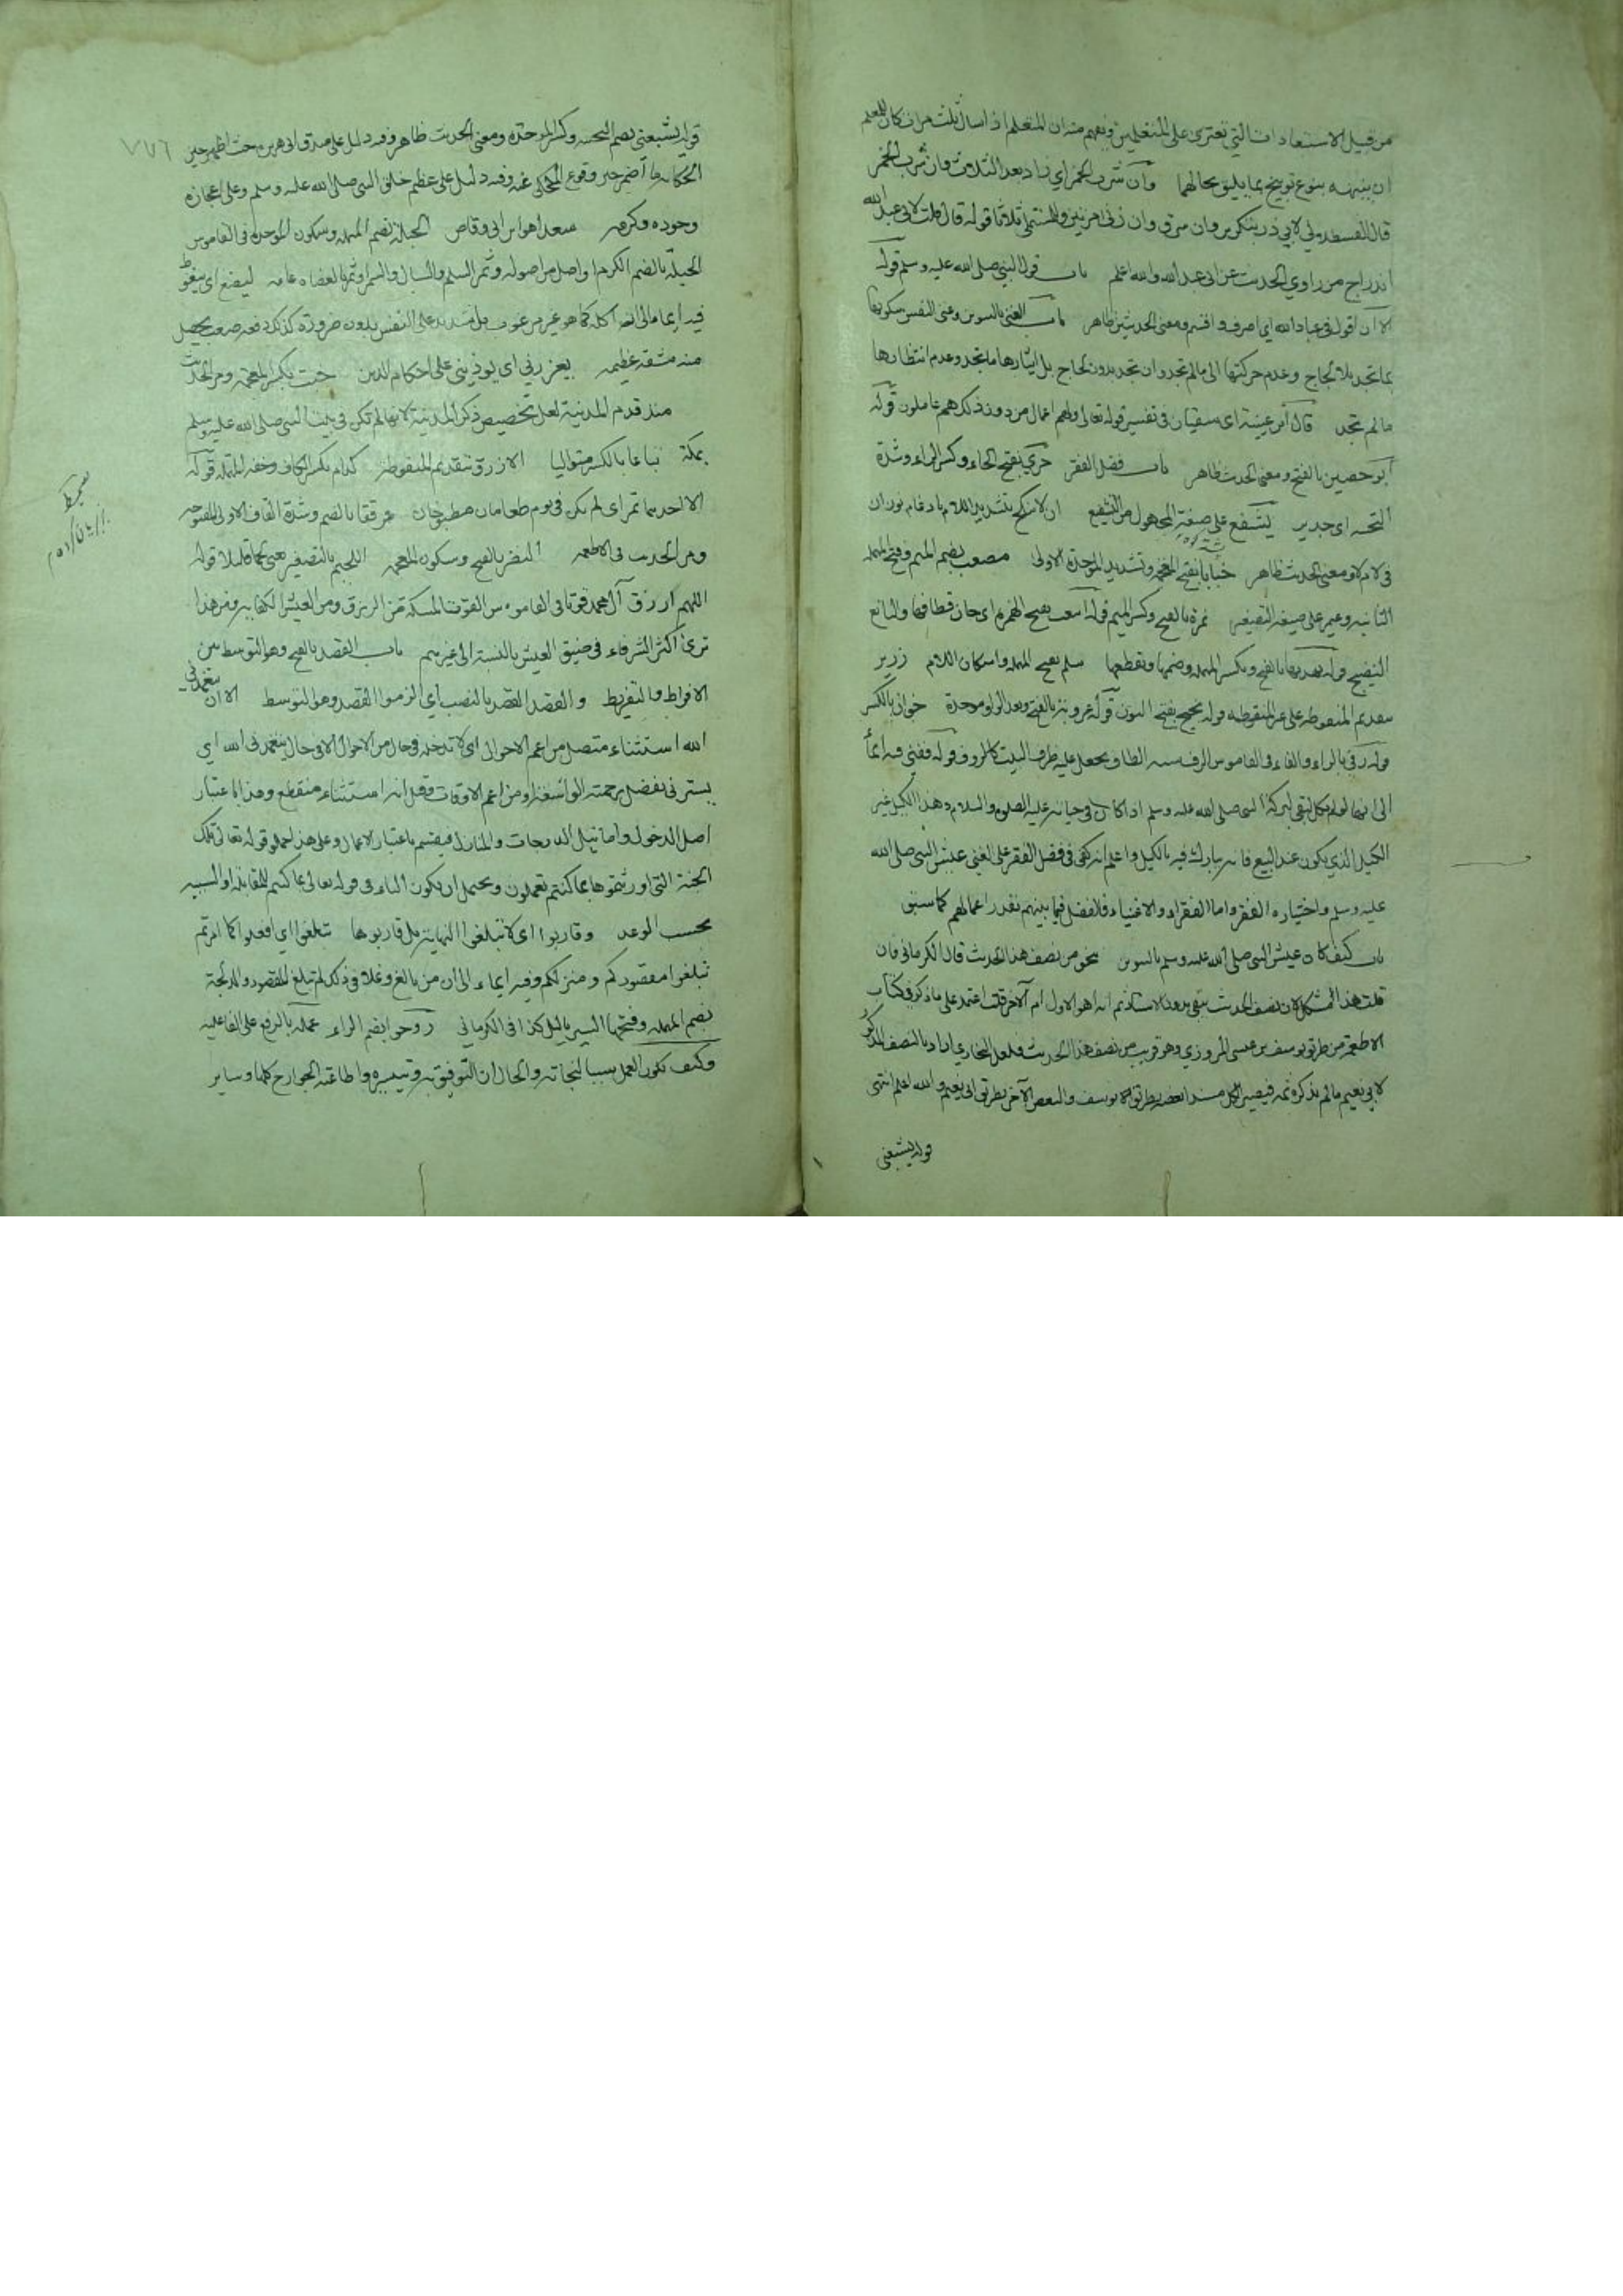 من قبيل الاستعادات التي تعتري على المتعلمين وفهم منه ان المتعلم اذا سال ثلث مرات كان للمعلم
ان ينبهه بنوع توبيخ بما يليق بحالهما وان شرب الخمر اي زاد بعد الثلاث وان شرب الخمر
قال القسطلاني لابي ذر بتكرير وان سرق وان زنى مرتين وللمستملي ثلاثا قوله قال قلت لابي عبد الله
ادراج من راوي الحديث عن ابي عبد الله والله اعلم باب قول النبي صلى الله عليه وسلم قوله
الا ان اقول في عباد الله اي اصرف واقسم ومعنى الحديثين ظاهر باب الغنى بالتنوين وغنى النفس سكونها
بما تجد بلا لجاج وعدم حركتها الى مالم تجد وان تجد بدون لجاج بل ايثارها ما تجد وعدم انتظارها
مالم تجد قال ابن عيينة اي سفيان في تفسير قوله تعالى ولهم اعمال من دون ذلك هم عاملون قوله
ابو حصين بالفتح ومعنى الحديث ظاهر باب فضل الفقر حري بفتح الحاء وكسر الراء وشدة
التحتية اي جدير يشفع على صيغة المجهول من التشفيع ان لا ينكح بتشديد اللام بادغام نون ان
في لام لا ومعنى الحديث ظاهر خبابا بفتح المعجمة وتشديد الموحدة الاولى مصعب بضم الميم وفتح المهملة
الثانية وعمير على صيغة التصغير نمرة بالفتح وكسر الميم قوله اينعت بفتح الهمزة اي حان قطافها واليانع
النضيج قوله يهدبها بالفتح وبكسر المهملة وضمها ويقطعها سلم بفتح المهملة واسكان اللام زرير
بتقديم المنقوطة على غير المنقوطة قوله نجيح بفتح النون قوله عروبة بالفتح وبعد الواو موحدة خوان بالكسر
قوله رفي بالراء والفاء وفي القاموس الرف شبه الطاق يجعل عليه طرف البيت كالرفوف قوله ففني فيه ايماء
الى انها لو لم يكل لبقي لبركة النبي صلى الله عليه وسلم اذا كان في حياته عليه الصلوة والسلام وهذا الكيل غير
الكيل الذي يكون عند البيع فانه يبارك فيه بالكيل واعلم انه كفى في فضل الفقر على الغنى عيش النبي صلى الله
عليه وسلم واختياره الفقر واما الفقراء والاغنياء فلافضل فيما بينهم بقدر اعمالهم كما سبق
باب كيف كان عيش النبي صلى الله عليه وسلم بالتنوين نحو من نصف هذا الحديث قال الكرماني فان
قلت هذا مشكل لان نصف الحديث يبقى بدون الاسناد ثم انه اهو الاول ام الاخر قلت اعتمد على ما ذكر في كتاب
الاطعمة من طريق يوسف بن عيسى المروزي وهو قريب من نصف هذا الحديث فلعل البخاري اراد بالنصف المذكور
لابي نعيم مالم يذكره ثمه فيصير الكل مسندا بعضه بطريق يوسف والبعض الآخر بطريق ابي نعيم والله اعلم انتهى
قوله يشبعني
٧٧٦
قوله يشبعني بضم التحتية وكسر الموحدة ومعنى الحديث ظاهر وفيه دليل على صدق ابي هريرة حيث اظهر حين
الحكاية ما اضمر حين وقوع المحكي عنه وفيه دليل على عظيم خلق النبي صلى الله عليه وسلم وعلى اعجازه
وجوده وكرمه سعدا هو ابن ابي وقاص الحبلة بضم المهملة وسكون الموحدة في القاموس
الحبلة بالضم الكرم او اصل من اصوله وثمر السلم والسيال والسمر او ثمر العضاه عامة ليضع اي يغوط
فيه ايماء الى انه اكله كما هو غير مرغوب بل شديد على النفس بدون ضرورة كذلك دفعه صعب يحصل
منه مشقة عظيمة يعزرني اي يوذيني على احكام الدين خبت بكسر المعجمة ومر الحديث
منذ قدم المدينة لعل تخصيص ذكر المدينة لانها لم تكن في بيت النبي صلى الله عليه وسلم
بمكة تباعا بالكسر متواليا الازرق بتقديم المنقوطة كدام بكسر الكاف وخفة المهملة قوله
الا احديهما تمر اي لم يكن في يوم طعامان مطبوخان مرققا بالضم وشدة القاف الاولى المفتوحة
ومر الحديث في الاطعمة النضر بالفتح وسكون المعجمة اللحيم بالتصغير يعني لحما قليلا قوله
اللهم ارزق آل محمد قوتا في القاموس القوت المسكة من الرزق ومن العيش الكفاية ومن هذا
ترى اكثر الشرفاء في ضيق العيش بالنسبة الى غيرهم باب القصد بالفتح وهو التوسط بين
الافراط والتفريط والقصد القصد بالنصب اي الزموا القصد وهو التوسط الا ان يتغمدني
الله استثناء متصل من اعم الاحوال اي لا تدخله في حال من الاحوال الا في حال يتغمدني الله اي
يسترني بفضل برحمته الواسعة او من اعم الاوقات وقيل انه استثناء منقطع وهذا باعتبار
اصل الدخول واما نيل الدرجات والمنازل فيقسم باعتبار الاعمال وعلى هذا حملوا قوله تعالى تلك
الجنة التي اورثتموها بما كنتم تعملون ويحتمل ان يكون الباء في قوله تعالى بما كنتم للمقابلة او السببية
بحسب الوعد وقاربوا اي لا تبلغوا النهاية بل قاربوها تبلغوا اي افعلوا كما امرتم
تبلغوا مقصودكم ومنزلكم وفيه ايماء الى ان من بالغ وغلا في ذلك لم تبلغ المقصود والدلجة
بضم المهملة وفتحها السير بالليل كذا في الكرماني روحوا بضم الراء عمله بالرفع على الفاعلية
وكيف يكون العمل سببا لنجاته والحال ان التوفيق به وتيسيره واطاعته الجوارح كلها وساير